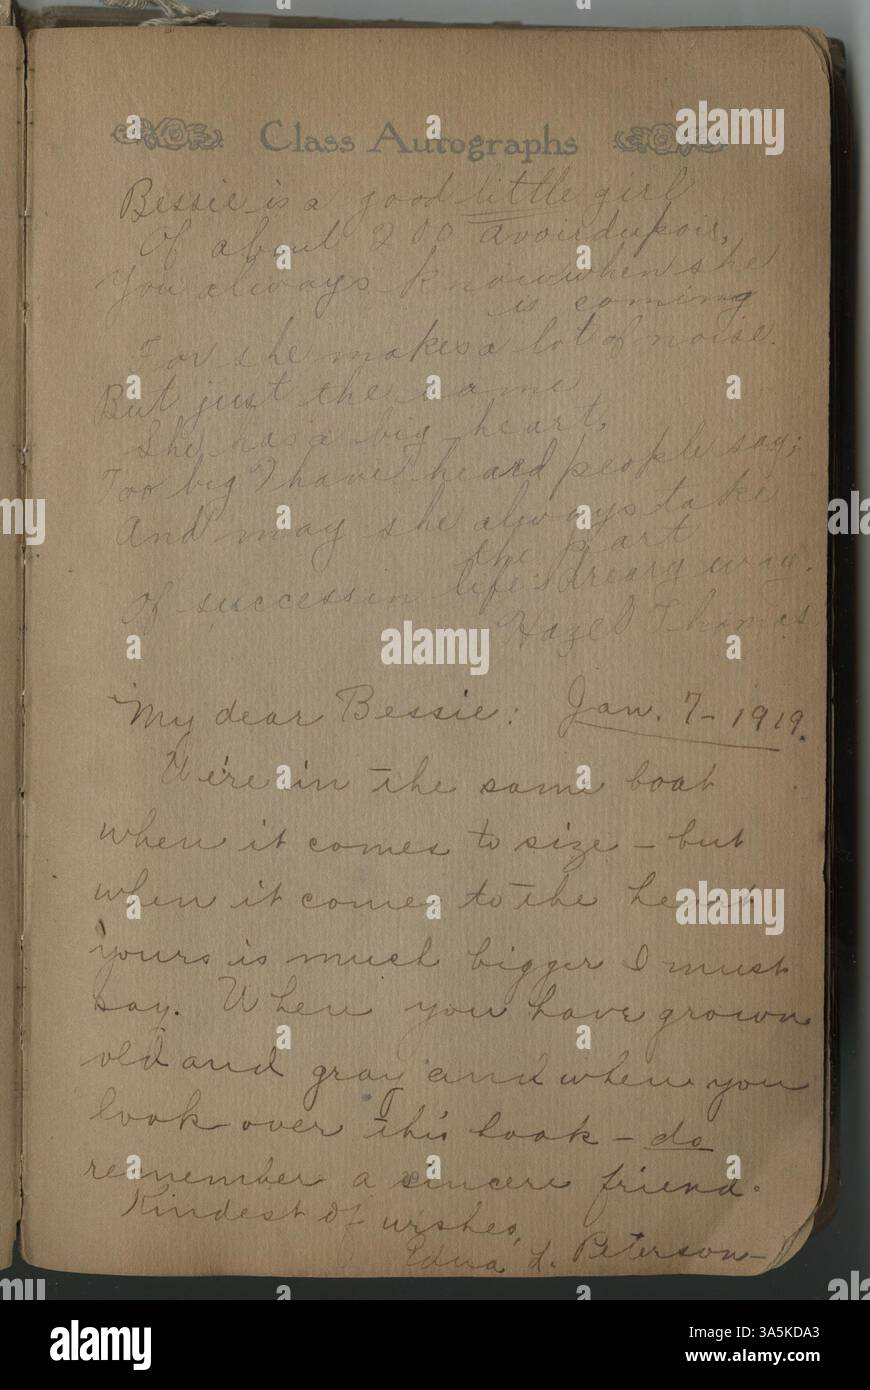 Class Autographs
Bessie is a good little girl
Of about 200 avoirdupois,
You always know when she
is coming
For she makes a lot of noise.
But just the same
She has a big heart,
Too big I have heard people say;
And may she always take
the part
Of success in life's dreary way.
Hazel Thomas
My dear Bessie: Jan. 7-1919.
We're in the same boat
when it comes to size - but
when it comes to the heart
yours is much bigger I must
say. When you have grown
old and gray and when you
look over this book - do
remember a sincere friend.
Kindest of wishes,
Edna L. Peterson-
alamy
Image ID: 3A5KDA3
www.alamy.com